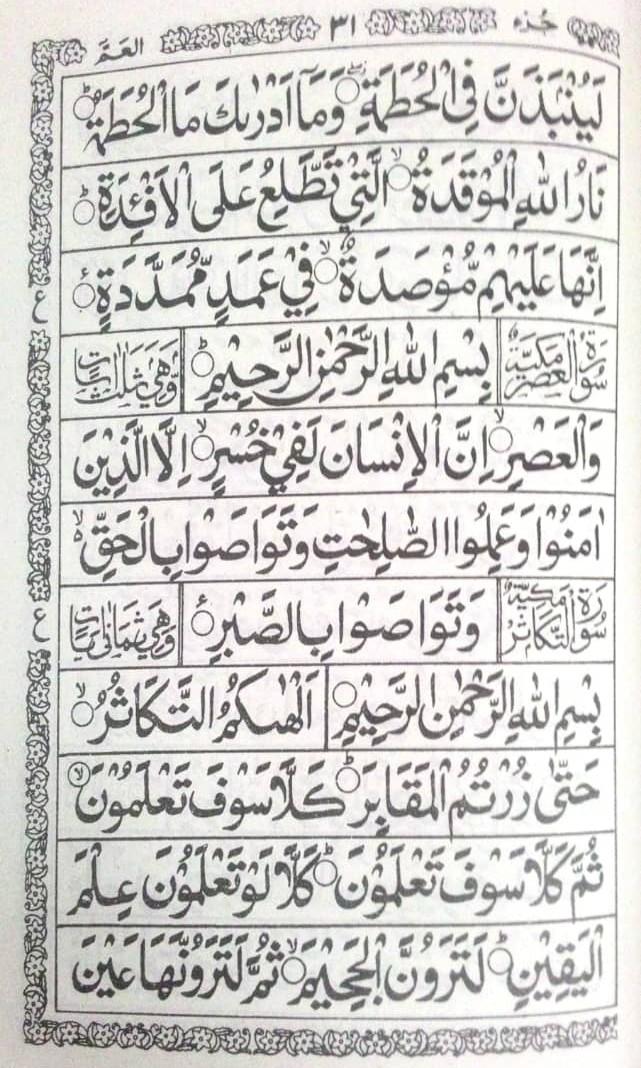 جزء ٣١ العم
لَيُنْۢبَذَنَّ فِي الْحُطَمَةِ ○ وَمَآ اَدْرٰىكَ مَا الْحُطَمَةُ ○
نَارُ اللّٰهِ الْمُوْقَدَةُ ○ الَّتِيْ تَطَّلِعُ عَلَى الْاَفْـِٕدَةِ ○
اِنَّهَا عَلَيْهِمْ مُّؤْصَدَةٌ ○ فِيْ عَمَدٍ مُّمَدَّدَةٍ ○ ع
سُوْرَةُ الْعَصْرِ مَكِّيَّةٌ بِسْمِ اللّٰهِ الرَّحْمٰنِ الرَّحِيْمِ ○ وَّهِيَ ثَلٰثُ اٰيَاتٍ
وَالْعَصْرِ ○ اِنَّ الْاِنْسَانَ لَفِيْ خُسْرٍ ○ اِلَّا الَّذِيْنَ
اٰمَنُوْا وَعَمِلُوا الصّٰلِحٰتِ وَتَوَاصَوْا بِالْحَقِّ
سُوْرَةُ التَّكَاثُرِ مَكِّيَّةٌ وَتَوَاصَوْا بِالصَّبْرِ ○ وَّهِيَ ثَمَانِيْ اٰيَاتٍ ع
بِسْمِ اللّٰهِ الرَّحْمٰنِ الرَّحِيْمِ ○ اَلْهٰىكُمُ التَّكَاثُرُ ○
حَتّٰى زُرْتُمُ الْمَقَابِرَ ○ كَلَّا سَوْفَ تَعْلَمُوْنَ ○
ثُمَّ كَلَّا سَوْفَ تَعْلَمُوْنَ ○ كَلَّا لَوْ تَعْلَمُوْنَ عِلْمَ
الْيَقِيْنِ ○ لَتَرَوُنَّ الْجَحِيْمَ ○ ثُمَّ لَتَرَوُنَّهَا عَيْنَ